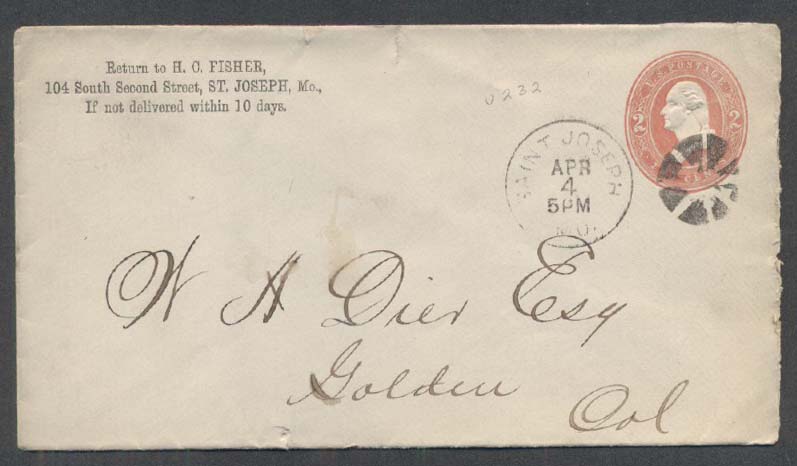 Return to H. C. FISHER,
104 South Second Street, ST. JOSEPH, Mo.,
If not delivered within 10 days.
U232
U.S. POSTAGE
2 2
SAINT JOSEPH
APR
4
5PM
MO.
W A Dier Esq
Golden
Col